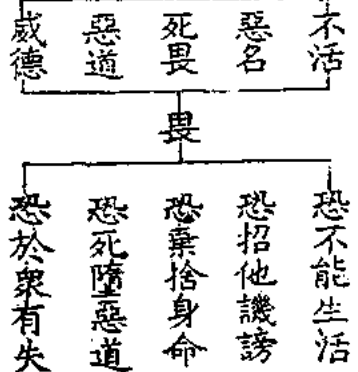 不活
惡名
死畏
惡道
威德
畏
恐不能生活
恐招他譏謗
恐棄捨身命
恐死墮惡道
恐於衆有失